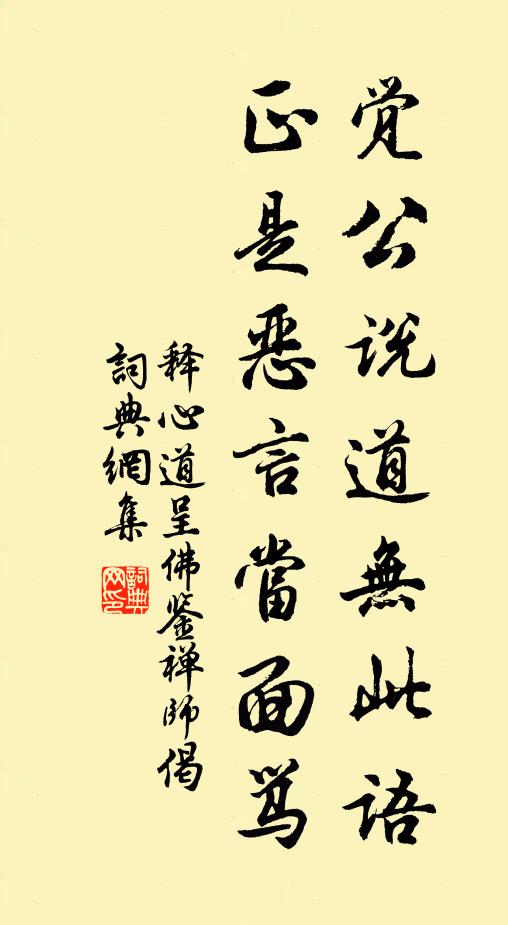 觉公说道無此语
正是恶言當面骂
释心道呈佛鉴禅师偈
詞典網集
詞典网印